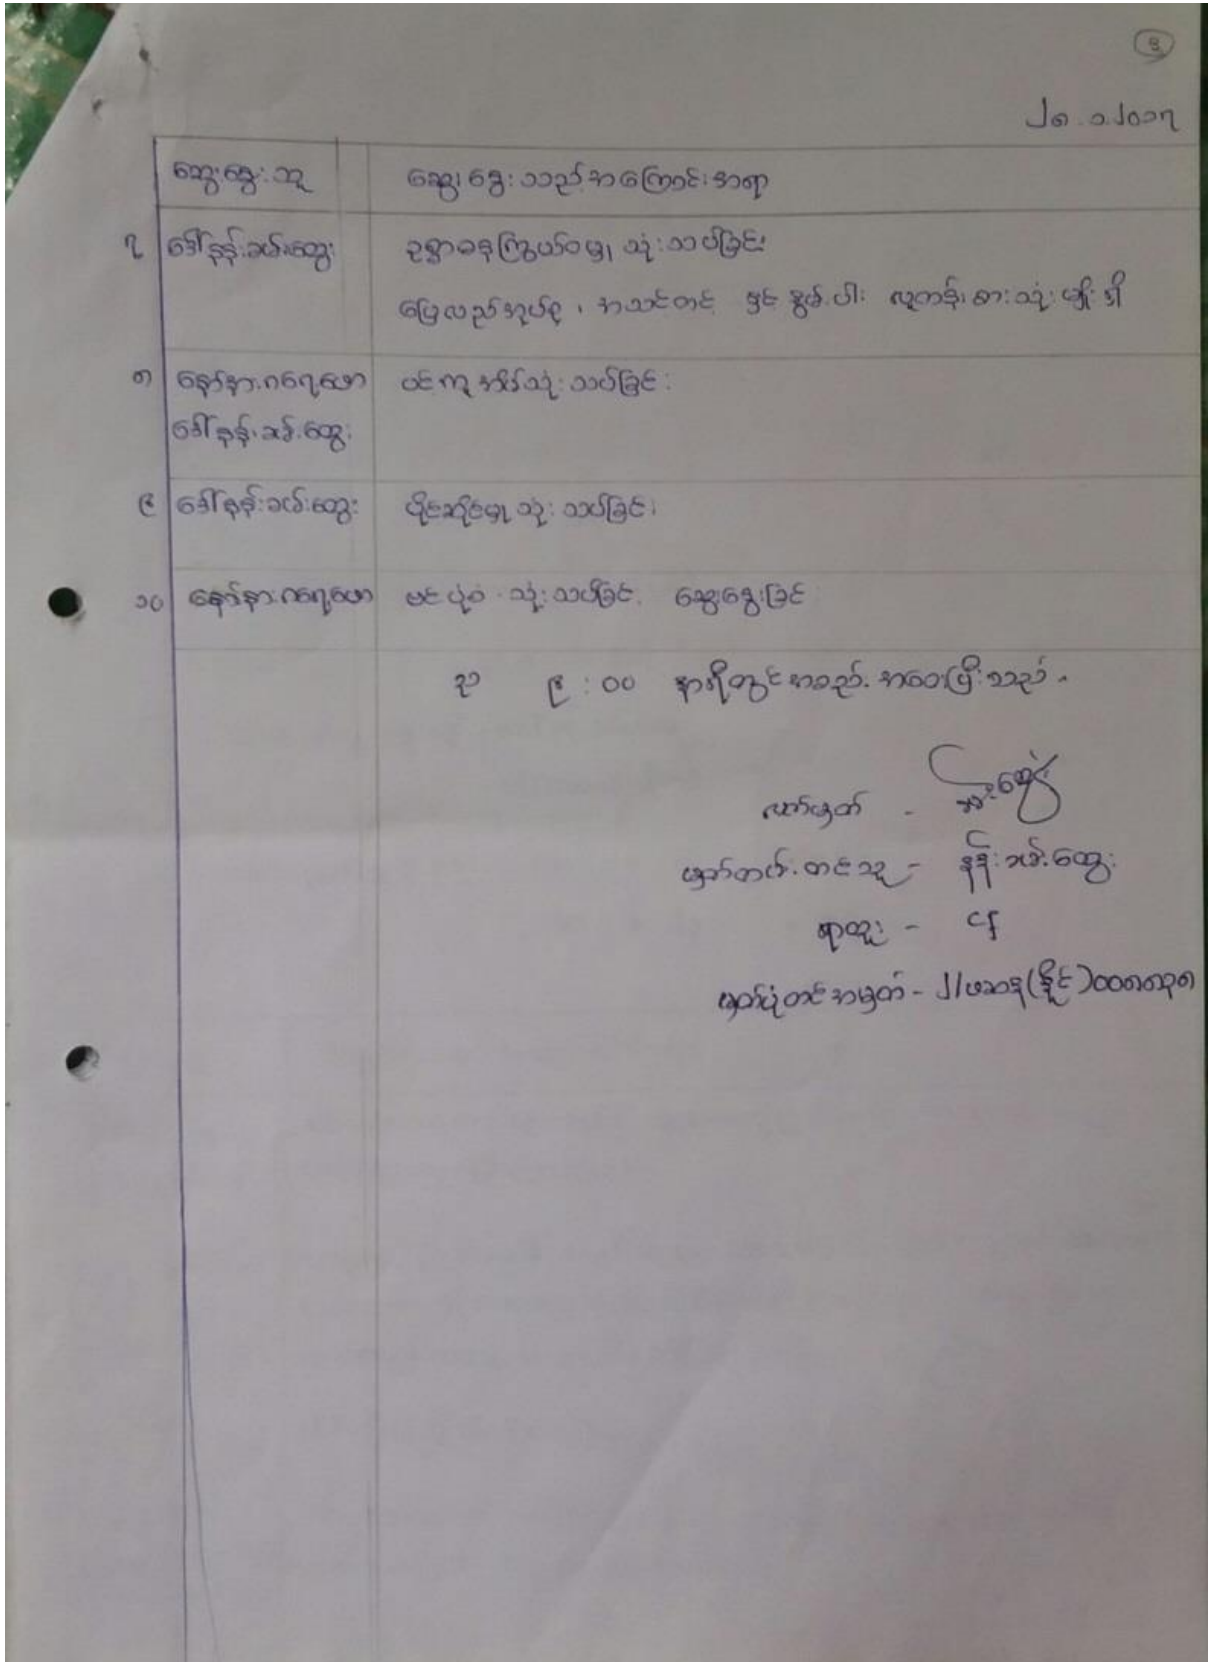 ၃
၂၈.၁.၂၀၁၇
ဆွေးနွေးသူ ဆွေးနွေးသည့်အကြောင်းအရာ
၇ ဒေါ်နန်းခမ်းထွေး ဥစ္စာဓနကြွယ်ဝမှု သုံးသပ်ခြင်း
ပြေလည်အုပ်စု၊ အသင့်တင့် နှင့် နွမ်းပါး လူတန်းစားသုံးမျိုးရှိ
၈ နော်နားဂရေဖော ဝင်ကူအိမ်သုံးသပ်ခြင်း
ဒေါ်နန်းခမ်းထွေး
၉ ဒေါ်နန်းခမ်းထွေး ပိုင်ဆိုင်မှု သုံးသပ်ခြင်း
၁၀ နော်နားဂရေဖော မင်းပုံစံ သုံးသပ်ခြင်း ဆွေးနွေးခြင်း
ည ၉:၀၀ နာရီတွင်အစည်းအဝေးပြီးသည်။
လက်မှတ် -
မှတ်တမ်းတင်သူ - နန်းခမ်းထွေး
ရာထူး - CF
မှတ်ပုံတင်အမှတ် - ၂/ဖဆန(နိုင်)